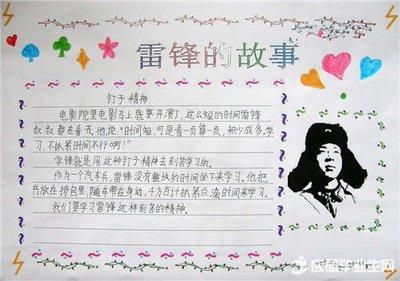 雷锋的故事
钉子精神
电影院里电影马上就要开演了,这么短的时间雷锋
叔叔都在看书,他说“时间短,可是看一页算一页,积少成多,学
习,不抓紧时间不行啊!”
学雷锋就是用这种钉子精神去刻苦学习的。
作为一个汽车兵,雷锋没有整块的时间坐下来学习。他把
书放在挎包里,随车带在身边,千方百计抓紧点滴时间来学习。
我们要学习雷锋这种刻苦的精神。
应届毕业生网